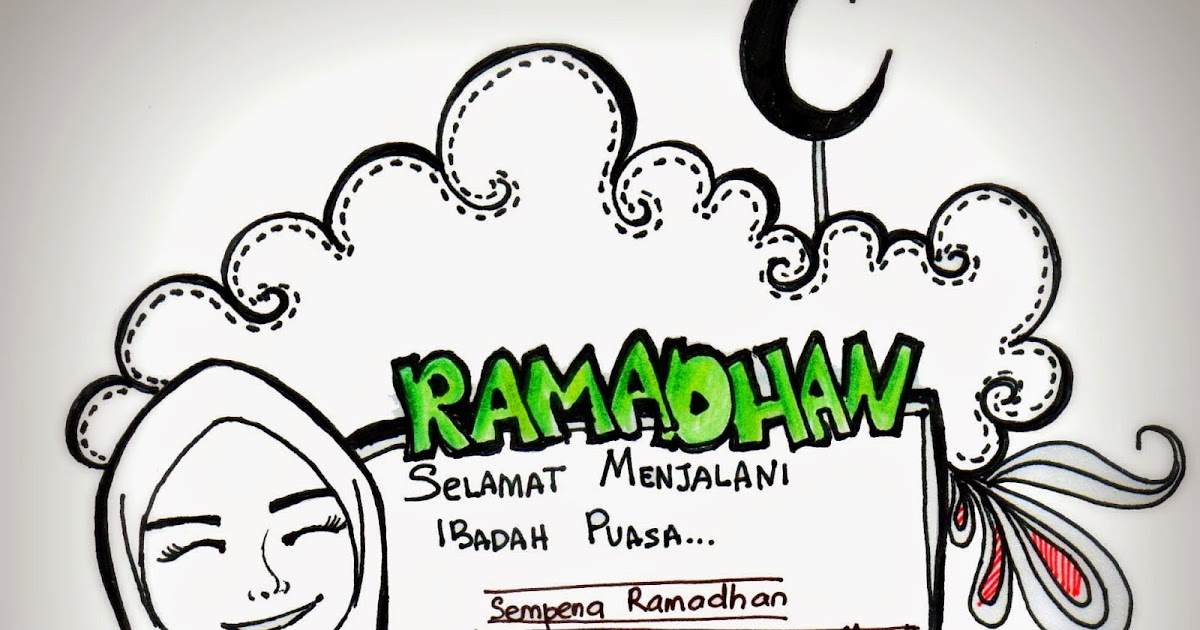 RAMADHAN
SELAMAT MENJALANI
IBADAH PUASA...
Sempena Ramadhan